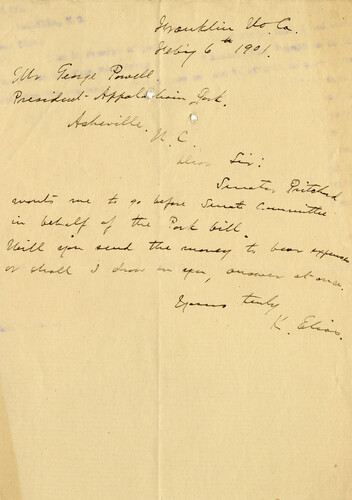 Franklin No. Ca.
Feby 6th 1901.
Mr George Powell.
President-Appalachain Park.
Asheville.
N. C.
Dear Sir:
Senator Pritchard
wants me to go before Senate Committee
in behalf of the Park bill.
Will you send the money to bear expenses
or shall I draw on you, answer at once.
Yours truly
K. Elias.